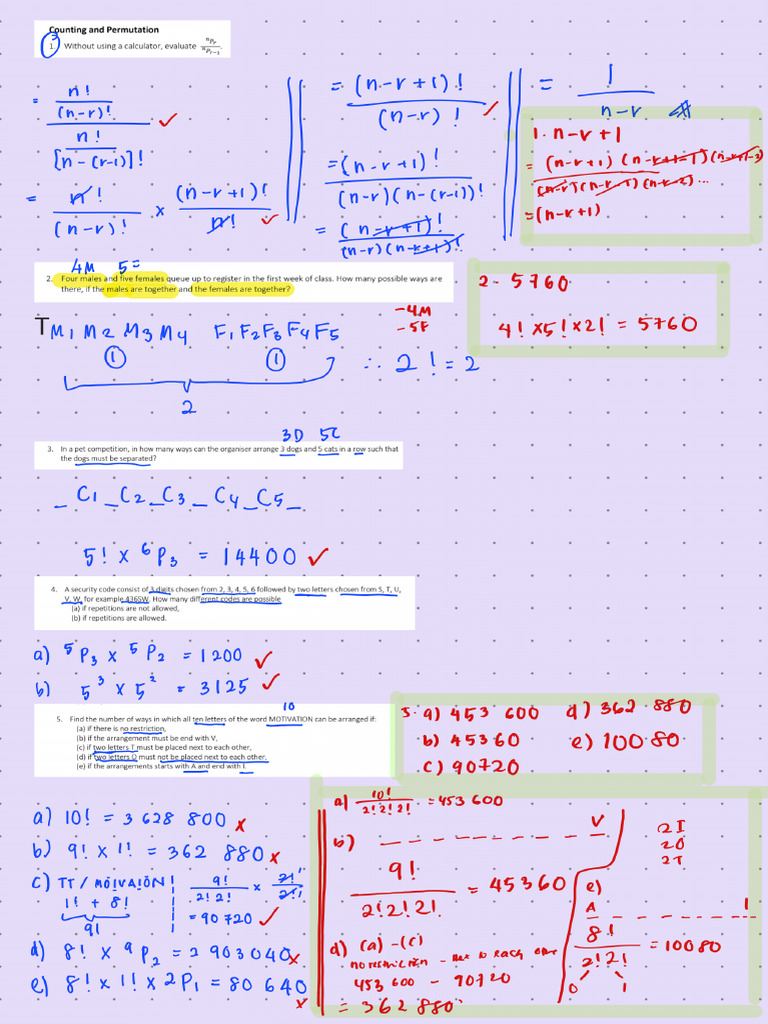 Counting and Permutation
3
1. Without using a calculator, evaluate nPr / nPr−1.
= n! / (n-r)! / n! / [n-(r-1)]! ✓
= n! / (n-r)! × (n-r+1)! / n! ✓
= (n-r+1)! / (n-r)! ✓
= (n-r+1)! / (n-r)(n-(r-1))!
= (n-r+1)! / (n-r)(n-r+1)!
= 1 / n-r
1. n-r+1
= (n-r+1)(n-r+1-1)(n-r+1-2) / (n-r)(n-r-1)(n-r-2)...
= (n-r+1)
4M 5F
2. Four males and five females queue up to register in the first week of class. How many possible ways are
there, if the males are together and the females are together?
2. 5760
4! × 5! × 2! = 5760
-4M
-5F
T
M1 M2 M3 M4 F1 F2 F3 F4 F5
1 1
2
∴ 2! = 2
3D 5C
3. In a pet competition, in how many ways can the organiser arrange 3 dogs and 5 cats in a row such that
the dogs must be separated?
_ C1 _ C2 _ C3 _ C4 _ C5 _
5! × 6P3 = 14400 ✓
4. A security code consist of 3 digits chosen from 2, 3, 4, 5, 6 followed by two letters chosen from S, T, U,
V, W, for example 436SW. How many different codes are possible
(a) if repetitions are not allowed,
(b) if repetitions are allowed.
a) 5P3 × 5P2 = 1200 ✓
b) 5³ × 5² = 3125 ✓
10
5. Find the number of ways in which all ten letters of the word MOTIVATION can be arranged if:
(a) if there is no restriction,
(b) if the arrangement must be end with V,
(c) if two letters T must be placed next to each other,
(d) if two letters O must not be placed next to each other,
(e) if the arrangements starts with A and end with I.
5. a) 453 600 d) 362 880
b) 45360 e) 10080
c) 90720
a) 10! = 3 628 800 x
b) 9! × 1! = 362 880 x
c) TT / MOIVAION
1! + 8!
9!
9! / 2!2! × 2! / 2!
= 90720 ✓
d) 8! × 9P2 = 2 903040 x
e) 8! × 1! × 2P1 = 80 640 x
a) 10! / 2!2!2! = 453 600
b) _ _ _ _ _ _ _ _ _ V
9! / 2!2!2! = 45360
d) (a) - (c)
no restriction - next to each other
453 600 - 90720
= 362 880
2I
2O
2T
e)
A _ _ _ _ _ _ _ _ I
8! / 2!2! = 10080
O I